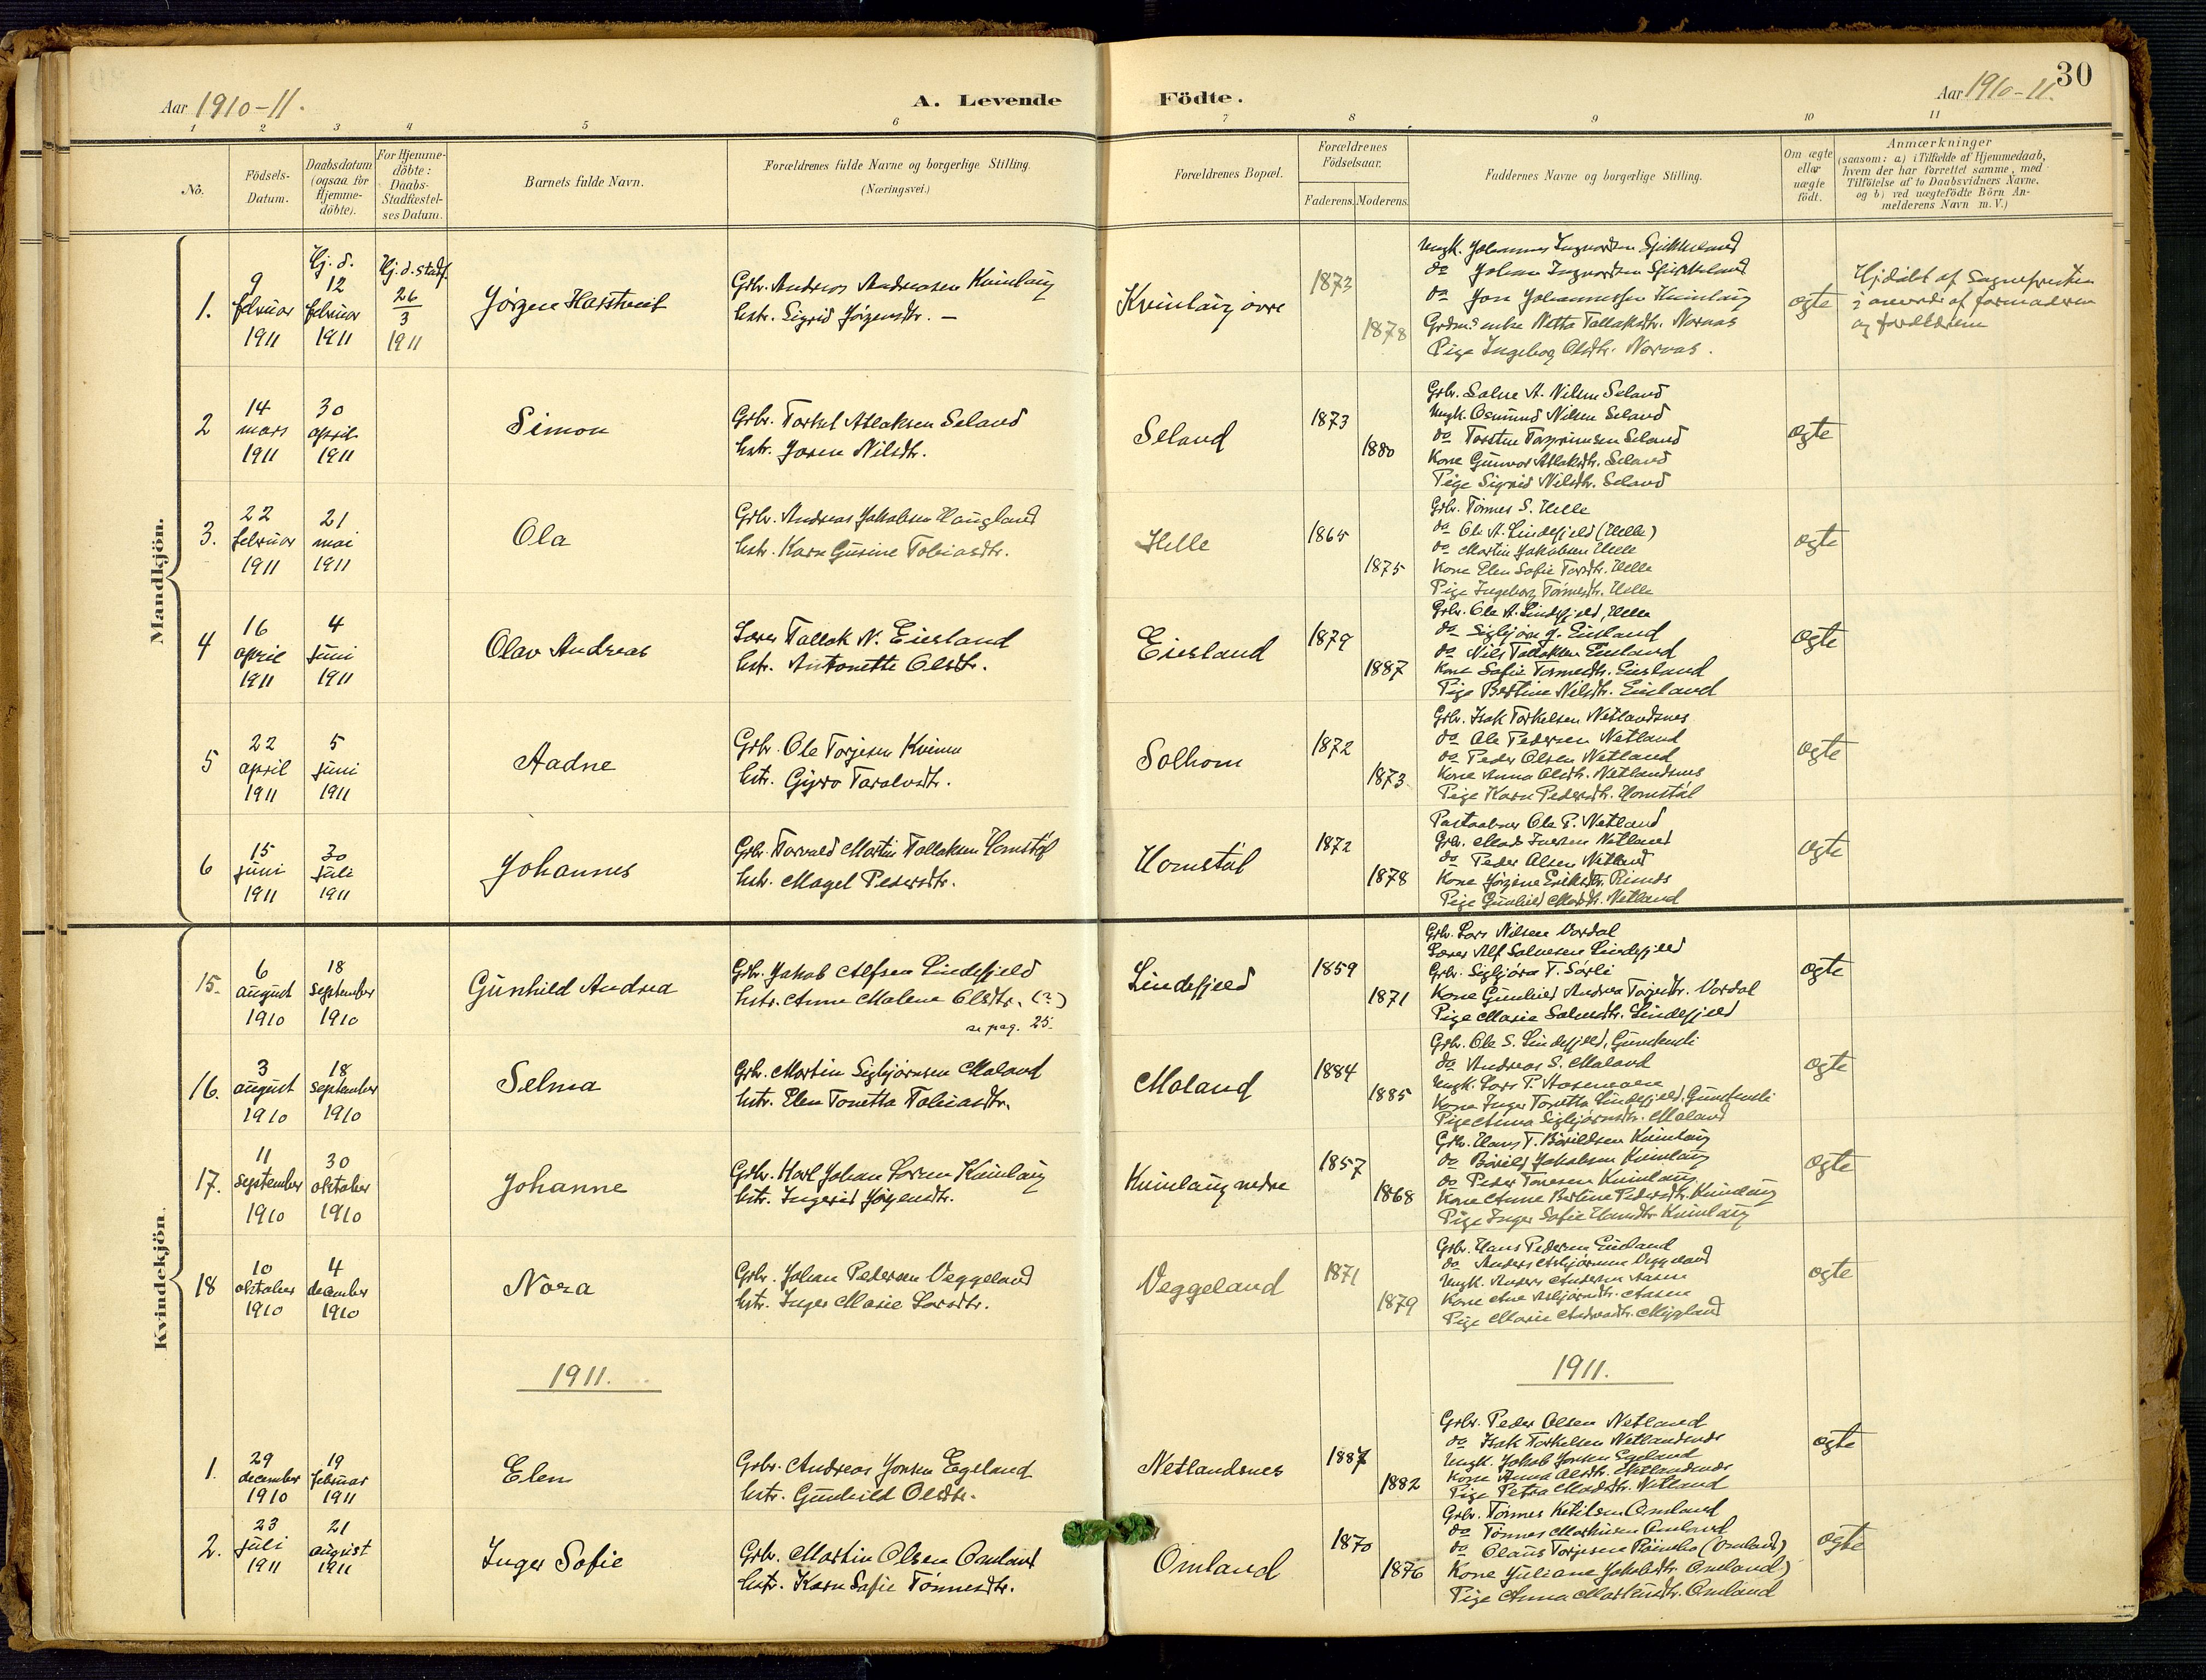 Aar 1910-11.
A. Levende
Födte.
Aar 1910-11.
30
1 2 3 4 5 6 7 8 9 10 11
No.
Födsels-
Datum.
Daabsdatum
(ogsaa for
Hjemme-
döbte).
For Hjemme-
döbte:
Daabs-
Stadfæstel-
ses Datum.
Barnets fulde Navn.
Forældrenes fulde Navne og borgerlige Stilling.
(Næringsvei.)
Forældrenes Bopæl.
Forældrenes
Födselsaar.
Faderens. Moderens.
Faddernes Navne og borgerlige Stilling.
Om ægte
eller
uægte
födt.
Anmærkninger
(saasom: a) i Tilfælde af Hjemmedaab,
hvem der har forrettet samme, med
Tilföielse af to Daabsvidners Navne,
og b) ved uægtefödte Börn An-
melderens Navn m. V.)
Mandkjön.
1.
9
februar
1911
Hj. d.
12
februar
1911
Hj. d. stadf.
26
3
1911
Jørgen Harstveit
Grbr. Andreas Andreasen Kvinlaug
hstr. Sigrid Jørgensdtr. —
Kvinlaug øvre
1873
1878
Ungk. Johannes Ingvardsen
do Johan Ingvardsen
do Jon Johannessen Kvinlaug
Grdms enke Netta Tallaksdtr. Narvas
Pige Ingeborg Olsdtr. Narvas.
ægte
Hjdøbt af Sognepresten
i nærvær af formoderen
og forældrene
2
14
mars
1911
30
april
1911
Simon
Grbr. Torkel Atlaksen Seland
hstr. Joren Nilsdtr.
Seland
1873
1880
Grbr. Salve A. Nilsen Seland
Ungk. Osmund Nilsen Seland
do Torsten Torgrimsen Seland
Kone Gunvor Atlaksdtr. Seland
Pige Sigrid Nilsdtr. Seland
ægte
3.
22
februar
1911
21
mai
1911
Ola
Grbr. Andreas Jakobsen Haugland
hstr. Karn Gusine Tobiasdtr.
Helle
1865
1875
Grbr. Tønnes S. Helle
do Ole A. Lindefjeld (Helle)
do Martin Jakobsen Helle
Kone Elen Sofie Torsdtr. Helle
Pige Ingeborg Tønnesdtr. Helle
ægte
4
16
april
1911
4
juni
1911
Olav Andreas
Lærer Tallak N. Eiesland
hstr. Antonette Olsdtr.
Eiesland
1879
1887
Grbr. Ole A. Lindefjeld, Helle
do Sigbjørn J. Eiesland
do Nils Tallaksen Eiesland
Kone Sofie Tønnesdtr. Eiesland
Pige Bertine Nilsdtr. Eiesland
ægte
5
22
april
1911
5
juni
1911
Aadne
Grbr. Ole Torjesen Kvinen
hstr. Gyro Taralvsdtr.
Solhom
1872
1873
Grbr. Isak Torkelsen Netlandsnes
do Ole Pedersen Netland
do Peder Olsen Netland
Kone Anna Olsdtr. Netlandsnes
Pige Karn Pedersdtr. Homstøl
ægte
6
15
juni
1911
30
juli
1911
Johannes
Grbr. Torvald Martin Tallaksen Homstøl
hstr. Magel Pedersdtr.
Homstøl
1872
1878
Postaabner Ole P. Netland
Grbr. Mads Iversen Netland
do Peder Olsen Netland
Kone Jørgine Eriksdtr. Risnes
Pige Gunhild Madsdtr. Netland
ægte
Kvindekjön.
15.
6
august
1910
18
september
1910
Gunhild Andrea
Grbr. Jakob Alfsen Lindefjeld
hstr. Anne Malene Olsdtr. (?)
se pag. 25.
Lindefjeld
1859
1871
Grbr. Lars Nilsen Vordal
Lærer Alf Salvesen Lindefjeld
Grbr. Sigbjørn T. Sørli
Kone Gunhild Andrea Torjesdtr. Vordal
Pige Marie Salvesdtr. Lindefjeld
ægte
16.
3
august
1910
18
september
1910
Selma
Grbr. Martin Sigbjørnsen Moland
hstr. Elen Tonetta Tobiasdtr.
Moland
1884
1885
Grbr. Ole S. Lindefjeld,
do Andreas S. Moland
Ungk. Lars P. Aasemoen
Kone Inger Tonetta Lindefjeld,
Pige Anna Sigbjørnsdtr. Moland
ægte
17.
11
september
1910
30
oktober
1910
Johanne
Grbr. Karl Johan Soren Kvinlaug
hstr. Ingerid Jørgensdtr.
Kvinlaug nedre
1857
1868
Grbr. Hans T. Bårildsen Kvinlaug
do Båril Jakobsen Kvinlaug
do Peder Tønesen Kvinlaug
Kone Anne Bertine Pedersdtr. Kvinlaug
Pige Inger Sofie Hansdtr. Kvinlaug
ægte
18
10
oktober
1910
4
december
1910
Nora
Grbr. Johan Pedersen Veggeland
hstr. Inger Marie Larsdtr.
Veggeland
1871
1879
Grbr. Hans Pedersen Eiesland
do Anders Asbjørnsen Veggeland
Ungk. Anders Andersen Aasen
Kone Ane Asbjørnsdtr. Aasen
Pige Marie Andreasdtr. Mygland
ægte
1911.
1911.
1.
29
december
1910
19
februar
1911
Elen
Grbr. Andreas Jonsen Egeland
hstr. Gunhild Olsdtr.
Netlandsnes
1887
1882
Grbr. Peder Olsen Netland
do Isak Torkelsen Netlandsnes
Ungk. Jakob Jonsen Egeland
Kone Anna Olsdtr. Netlandsnes
Pige Petra Madsdtr. Netland
ægte
2.
23
juli
1911
21
august
1911
Inger Sofie
Grbr. Martin Olsen Omland
hstr. Karn Sofie Tønnesdtr.
Omland
1870
1876
Grbr. Tønnes Ketilsen Omland
do Tønnes Martinsen Omland
do Olaus Torjesen (Omland)
Kone Juliane Jakobsdtr. Omland)
Pige Anna Martinsdtr. Omland
ægte